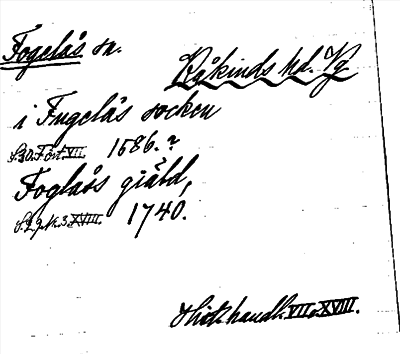 Fogelås sn.
Råkinds hd. Vg.
i Fugelås socken
S. 30. Fört. VII. 1586.?
Foglåss giäld,
S. 29. Nr. 3. XVIII. 1740.
Hist. handl. VII o. XVIII.